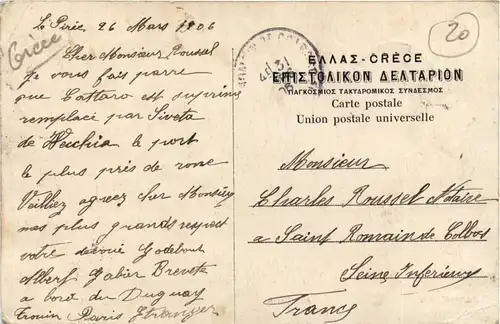 Grèce
Le Pirée, 26 Mars 1906
20
Cher Monsieur Roussel
Je vous fais parre
que Cattaro est suprime
remplacé par Siveta
de Vecchia le port
le plus près de rome
Veilliez agreez cher Monsieur
mes plus grands respect
votre dévoué Godebout
Albert Gabier Breveté
a bord du Duguay
Trouin Paris Etranger
ΕΛΛΑΣ-GRÈCE
ΕΠΙΣΤΟΛΙΚΟΝ ΔΕΛΤΑΡΙΟΝ
ΠΑΓΚΟΣΜΙΟΣ ΤΑΧΥΔΡΟΜΙΚΟΣ ΣΥΝΔΕΣΜΟΣ
Carte postale
Union postale universelle
Monsieur
Charles Roussel Notaire
a Saint Romain de Colbos
Seine Inferieure
France